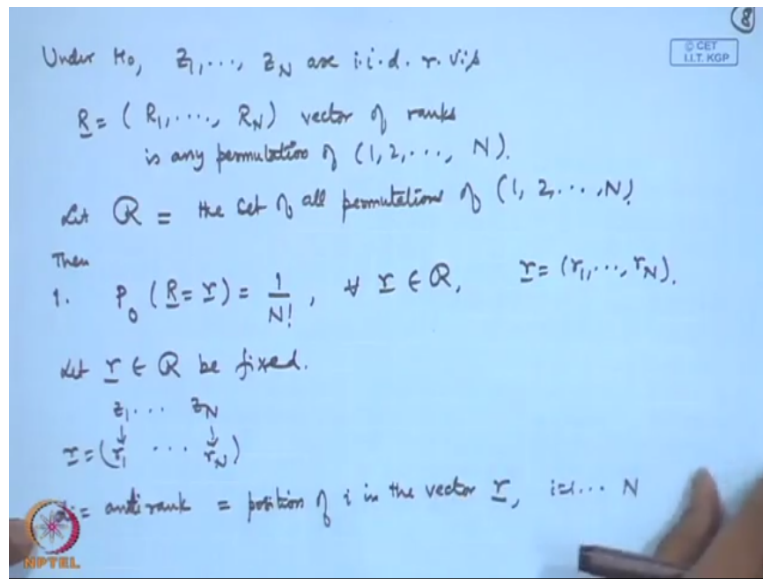 8
© CET
I.I.T. KGP
Under H₀, z₁, ..., z_N are i.i.d. r.v.'s
R = (R₁, ..., R_N) vector of ranks
is any permutation of (1, 2, ..., N).
Let ℛ = the set of all permutations of (1, 2, ..., N)
Then
1. P₀ (R = r) = 1/N! , ∀ r ∈ ℛ, r = (r₁, ..., r_N).
Let r ∈ ℛ be fixed.
z₁ ... z_N
↓ ↓
r = (r₁ ... r_N)
= anti rank = position of i in the vector r, i=1... N
NPTEL